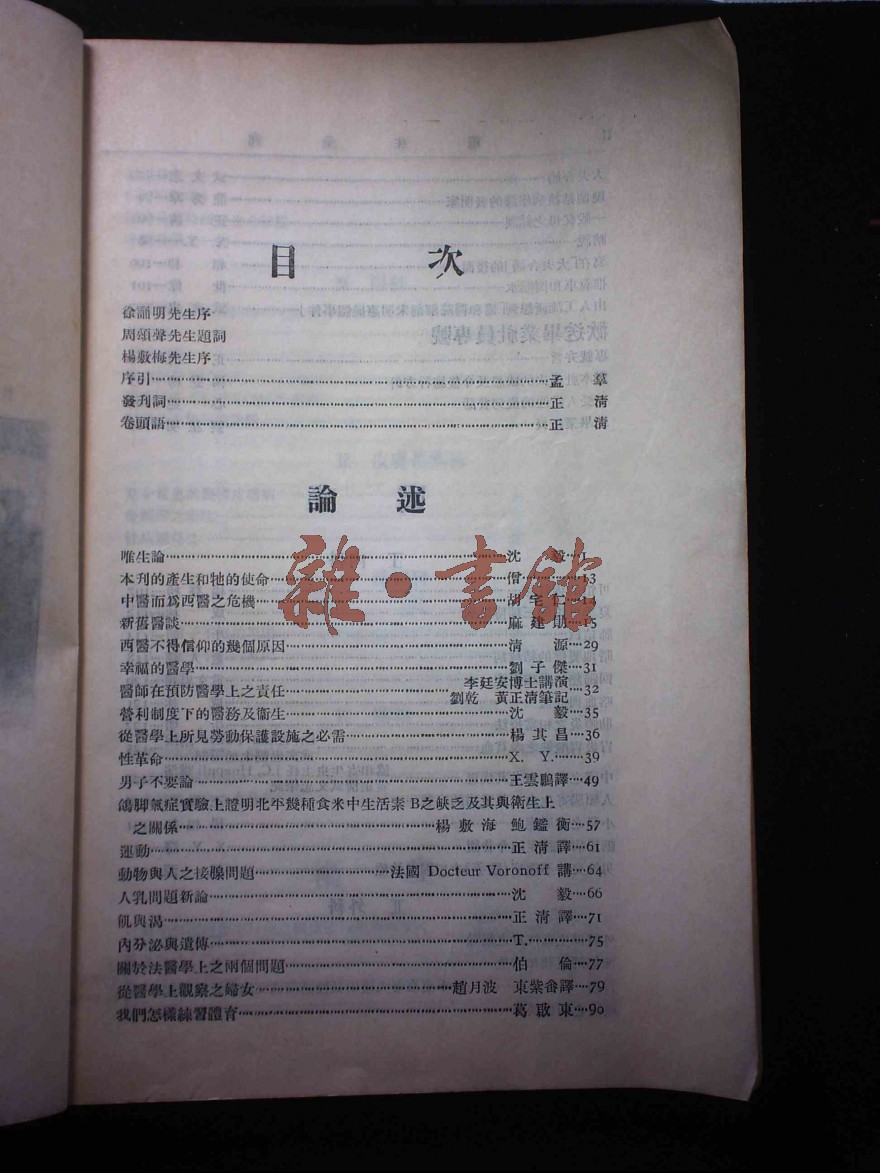 目 次
徐誦明先生序
周頌聲先生題詞
楊敷梅先生序
序引……孟 羣
發刊詞……正 清
卷頭語……正 清
論 述
唯生論……沈 毅…1
本刊的產生和牠的使命……僧…13
中醫而爲西醫之危機……胡 宅…14
新舊醫談……麻建朋…15
西醫不得信仰的幾個原因……清 源…29
幸福的醫學……劉子傑…31
醫師在預防醫學上之責任……李廷安博士講演 劉乾 黃正清筆記…32
營利制度下的醫務及衞生……沈 毅…35
從醫學上所見勞動保護設施之必需……楊其昌…36
性革命……X. Y.…39
男子不要論……王雲鵬譯…49
鴿脚氣症實驗上證明北平幾種食米中生活素B之缺乏及其與衛生上
之關係……楊敷海 鮑鑑衡…57
運動……正清譯…61
動物與人之接腺問題……法國 Docteur Voronoff 講…64
人乳問題新論……沈 毅…66
飢與渴……正清譯…71
內分泌與遺傳……T.…75
關於法醫學上之兩個問題……伯 倫…77
從醫學上觀察之婦女……趙月波 東紫畬譯…79
我們怎樣練習體育……葛啟東…90
雜·書館